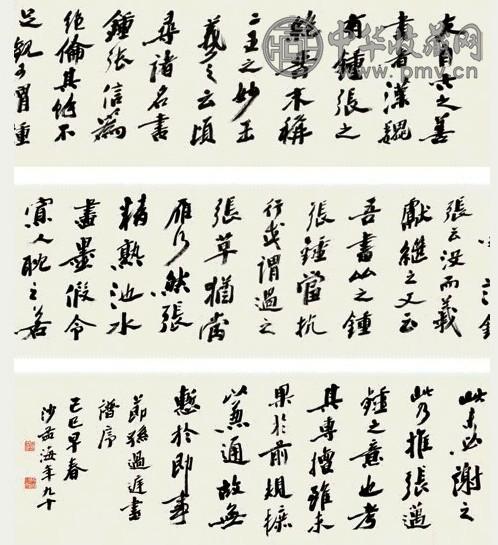 中华收藏网
www.pmv.cn
夫自古之善
書者漢魏
有鍾張之
絶晉末稱
二王之妙王
羲之云頃
尋諸名書
鍾張信爲
絶倫其餘不
足觀可謂鍾
張云没而羲
獻繼之又云
吾書比之鍾
張鍾當抗
行或謂過之
張草猶當
雁行然張
精熟池水
盡墨假令
寡人耽之若
此未必謝之
此乃推張邁
鍾之意也考
其專擅雖未
果於前規摭
以兼通故無
慙於即事
節孫過庭書
譜序
己巳早春
沙孟海年九十